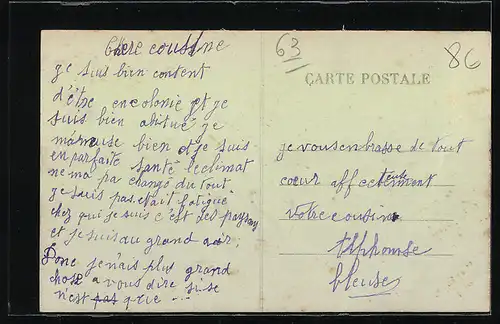 Chere cousine
je suis bien content
d'être en colonie et je
suis bien abitué je
m'ameuse bien et je suis
en parfaite santé le climat
ne ma pa changé du tout
je suis pas était fatigué
chez qui je suis c'est des paysans
et je suis au grand air,
Donc je n'ais plus grand
chose a vous dire si se
n'est pas que ...
63
86
CARTE POSTALE
je vous enbrasse de tout
cœur affecteusement
votre cousin
Alphonse
bleuse